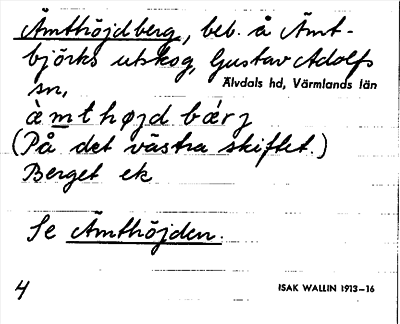 Ämthöjdberg, beb. å Ämt-
björks utskog, Gustav Adolfs
sn,
Älvdals hd, Värmlands län
(På det västra skiftet.)
Berget ek
Se Ämthöjden.
4
ISAK WALLIN 1913-16